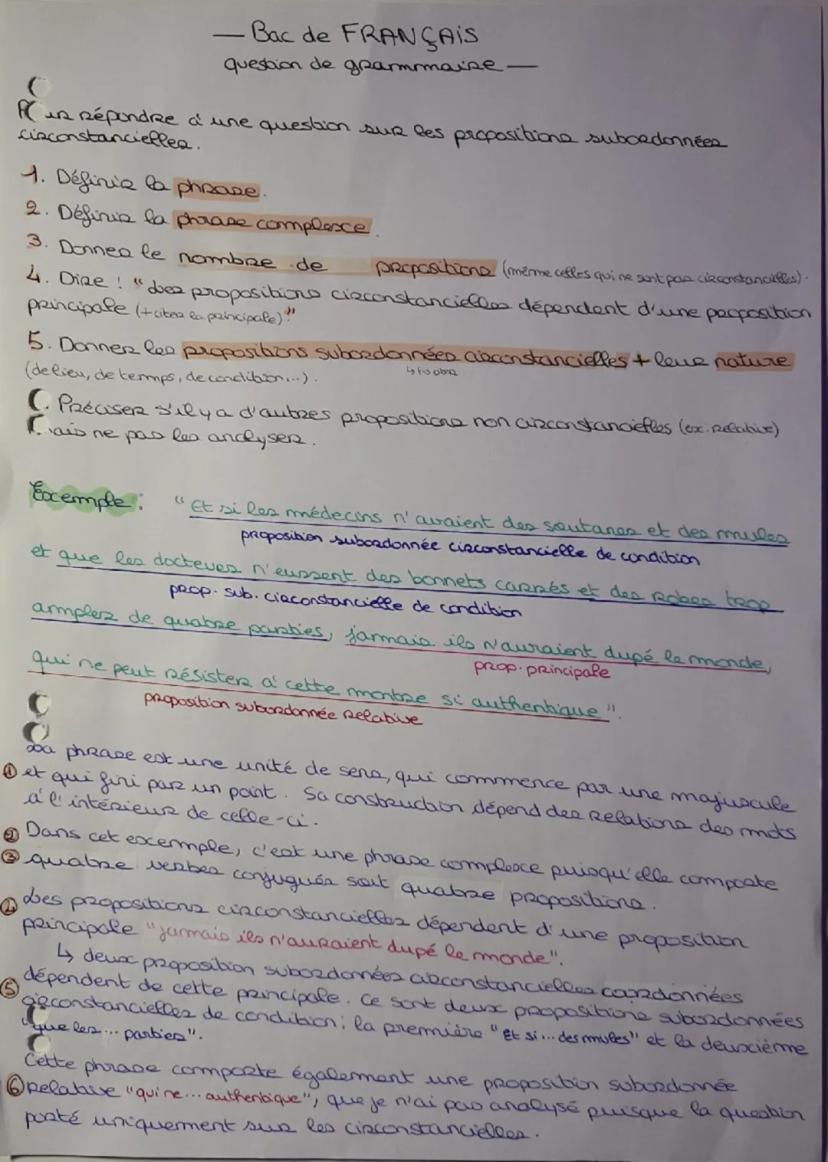 — Bac de FRANÇAIS
question de grammaire —
répondre à une question sur les propositions subordonnées
circonstancielles.
1. Définir la phrase.
2. Définir la phrase complexe.
3. Donner le nombre de propositions (même celles qui ne sont pas circonstancielles).
4. Dire : "Les propositions circonstancielles dépendent d'une proposition
principale (+ citer la principale)."
5. Donner les propositions subordonnées circonstancielles + leur nature
(de lieu, de temps, de condition...).
Préciser s'il y a d'autres propositions non circonstancielles (ex: relative)
mais ne pas les analyser.
Exemple : "Et si les médecins n'avaient des soutanes et des mules
proposition subordonnée circonstancielle de condition
et que les docteurs n'eussent des bonnets carrés et des robes trop
prop. sub. circonstancielle de condition
amples de quatre parties, jamais ils n'auraient dupé le monde,
prop. principale
qui ne peut résister à cette montre si authentique".
proposition subordonnée relative
La phrase est une unité de sens, qui commence par une majuscule
① et qui fini par un point. Sa construction dépend des relations des mots
à l'intérieur de celle-ci.
② Dans cet exemple, c'est une phrase complexe puisqu'elle comporte
③ quatre verbes conjugués soit quatre propositions.
④ Les propositions circonstancielles dépendent d'une proposition
principale "jamais ils n'auraient dupé le monde".
↳ deux proposition subordonnées circonstancielles coordonnées
dépendent de cette principale. Ce sont deux propositions subordonnées
⑤ circonstancielles de condition : la première "Et si ... des mules" et la deuxième
"que les ... parties".
Cette phrase comporte également une proposition subordonnée
⑥ relative "qui ne ... authentique", que je n'ai pas analysé puisque la question
porté uniquement sur les circonstancielles.